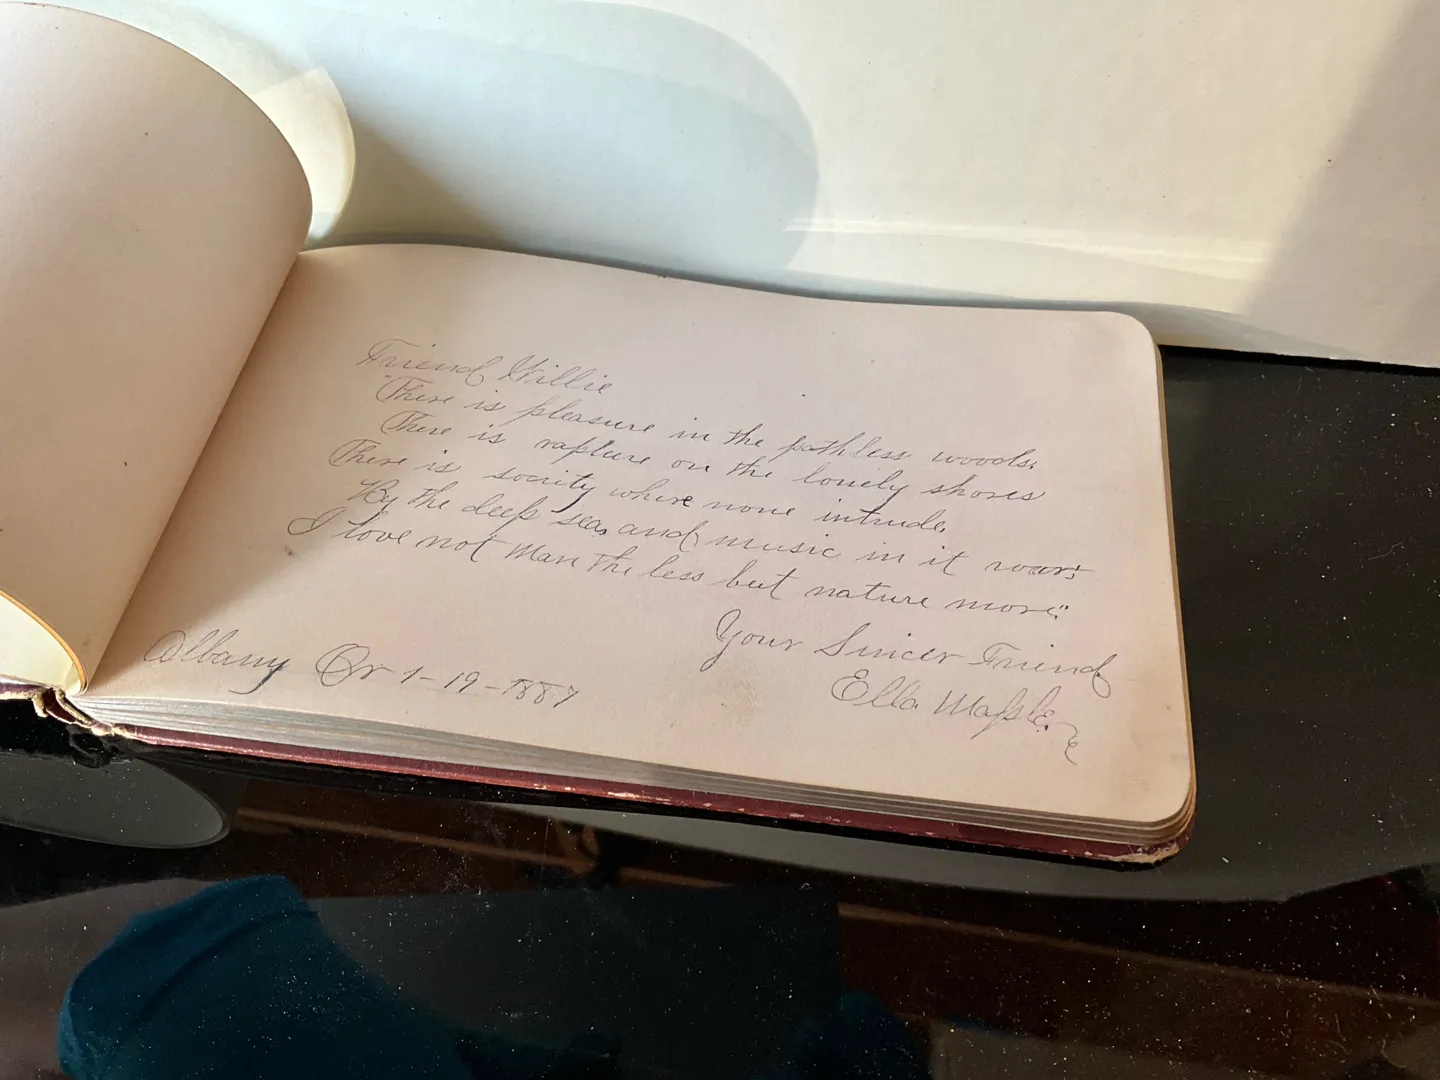 Friend Willie
"There is pleasure in the pathless woods,
There is rapture on the lonely shores
There is socity where none intrude,
By the deep sea, and music in it roar;
I love not Man the less but nature more."
Your Sincer Friend
Ella
Albany Or 1-19-1887